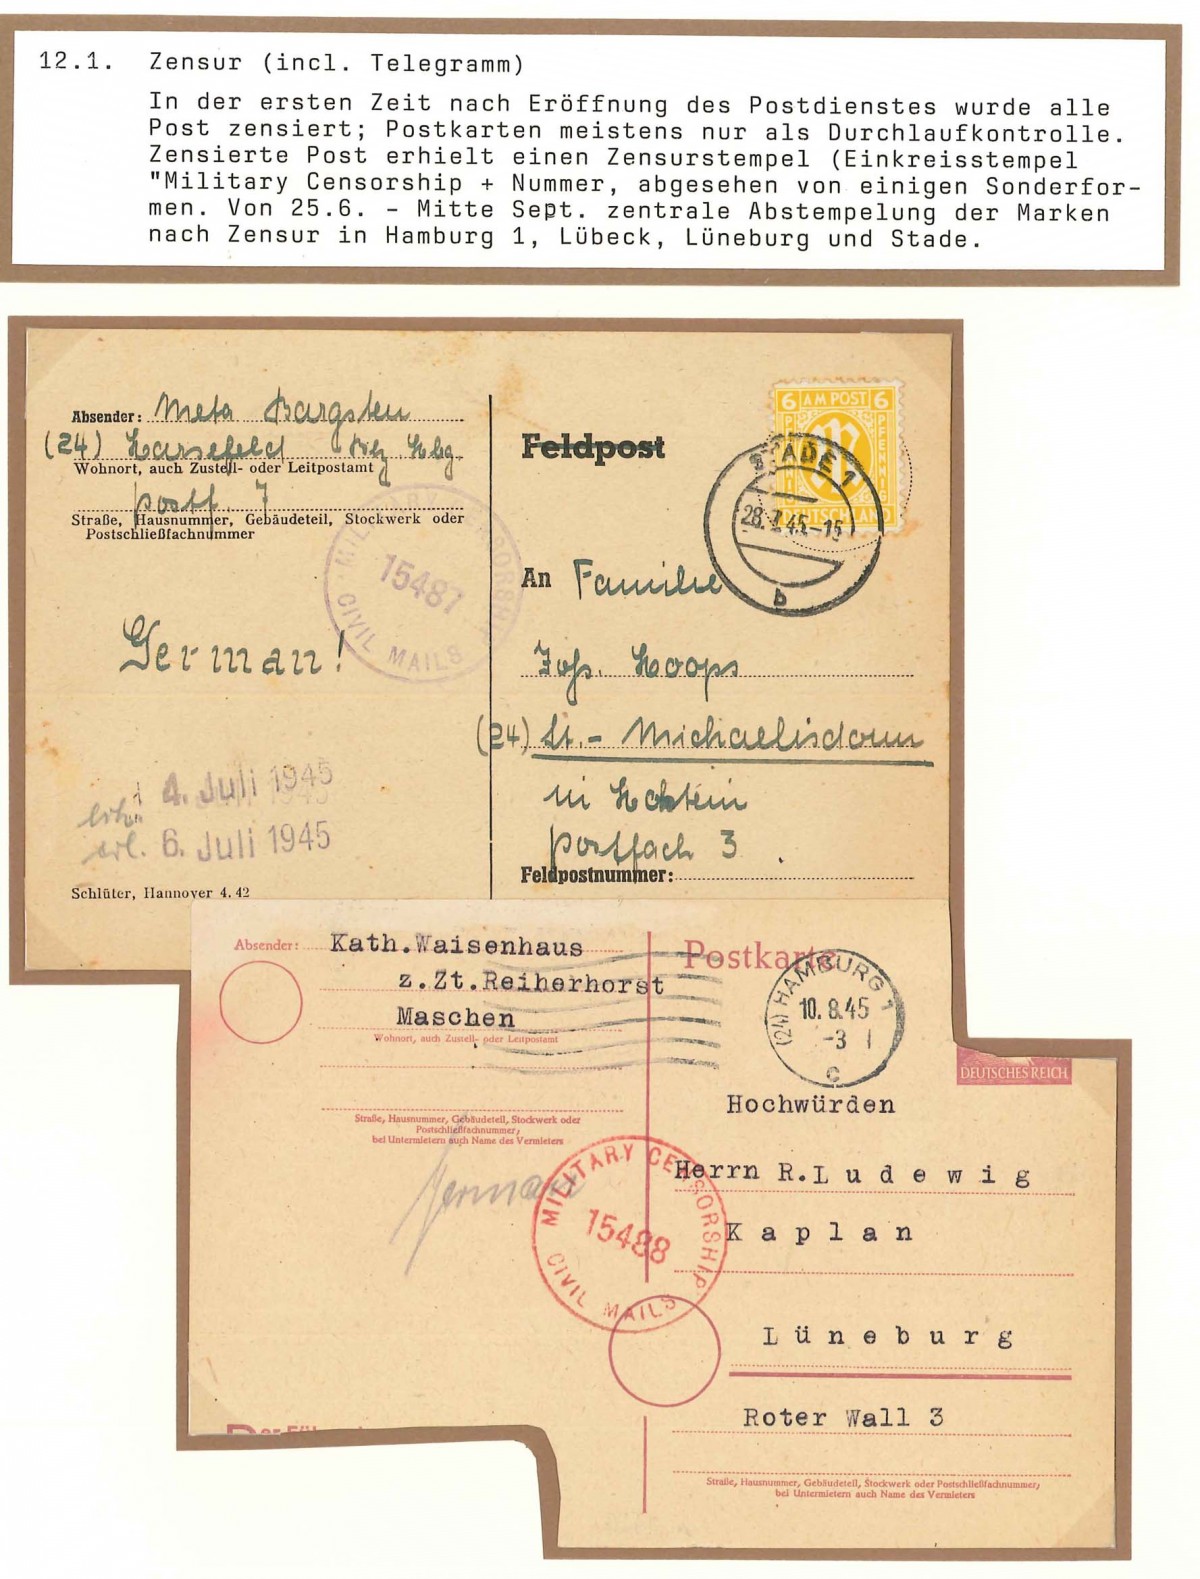 12.1. Zensur (incl. Telegramm)
In der ersten Zeit nach Eröffnung des Postdienstes wurde alle
Post zensiert; Postkarten meistens nur als Durchlaufkontrolle.
Zensierte Post erhielt einen Zensurstempel (Einkreisstempel
"Military Censorship + Nummer, abgesehen von einigen Sonderfor-
men. Von 25.6. - Mitte Sept. zentrale Abstempelung der Marken
nach Zensur in Hamburg 1, Lübeck, Lüneburg und Stade.
Absender: Meta Bargsten
(24) Harsefeld Bez. Hbg.
Wohnort, auch Zustell- oder Leitpostamt
Postf. 7
Straße, Hausnummer, Gebäudeteil, Stockwerk oder
Postschließfachnummer
MILITARY CENSORSH
15487
CIVIL MAILS
German!
4. Juli 1945
erl. 6. Juli 1945
Schlüter, Hannover 4. 42
Feldpost
6 AM POST 6
PFENNIG
DEUTSCHLAND
STADE 1
28. 45-15
b
An Familie
Joh. Hoops
(24) St.- Michaelisdonn
in Holstein
Postfach 3
Feldpostnummer:
Absender: Kath.Waisenhaus
z.Zt.Reiherhorst
Maschen
Wohnort, auch Zustell- oder Leitpostamt
Straße, Hausnummer, Gebäudeteil, Stockwerk oder
Postschließfachnummer;
bei Untermietern auch Name des Vermieters
German
MILITARY CENSORSHIP
15488
CIVIL MAILS
Postkarte
(24) HAMBURG 1
10. 8.45
-3
c
DEUTSCHES REICH
Hochwürden
Herrn R.Ludewig
Kaplan
Lüneburg
Roter Wall 3
Straße, Hausnummer, Gebäudeteil, Stockwerk oder Postschließfachnummer;
bei Untermietern auch Name des Vermieters